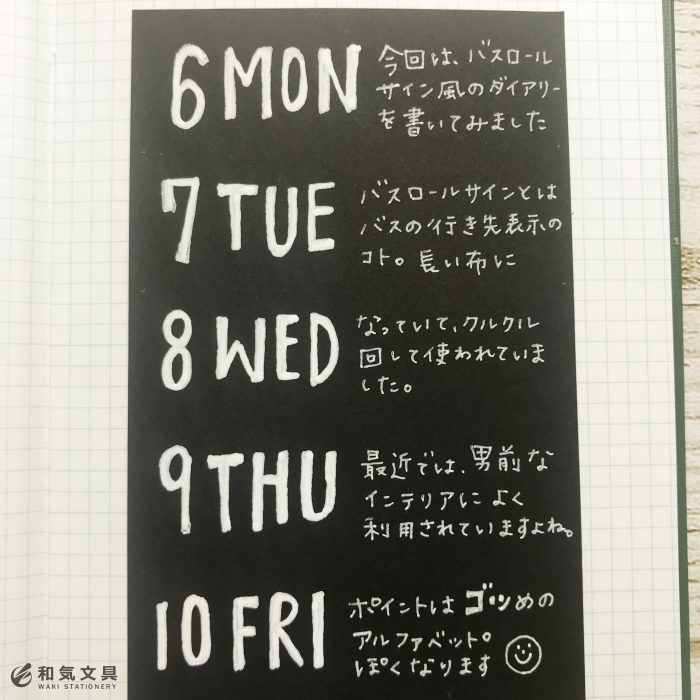 6 MON
今回は、バスロール
サイン風のダイアリー
を書いてみました
7 TUE
バスロールサインとは
バスの行き先表示の
コト。長い布に
8 WED
なっていて、クルクル
回して使われていま
した。
9 THU
最近では、男前な
インテリアによく
利用されていますよね。
10 FRI
ポイントはゴツめの
アルファベット。
ぽくなります
和気文具
WAKI STATIONERY